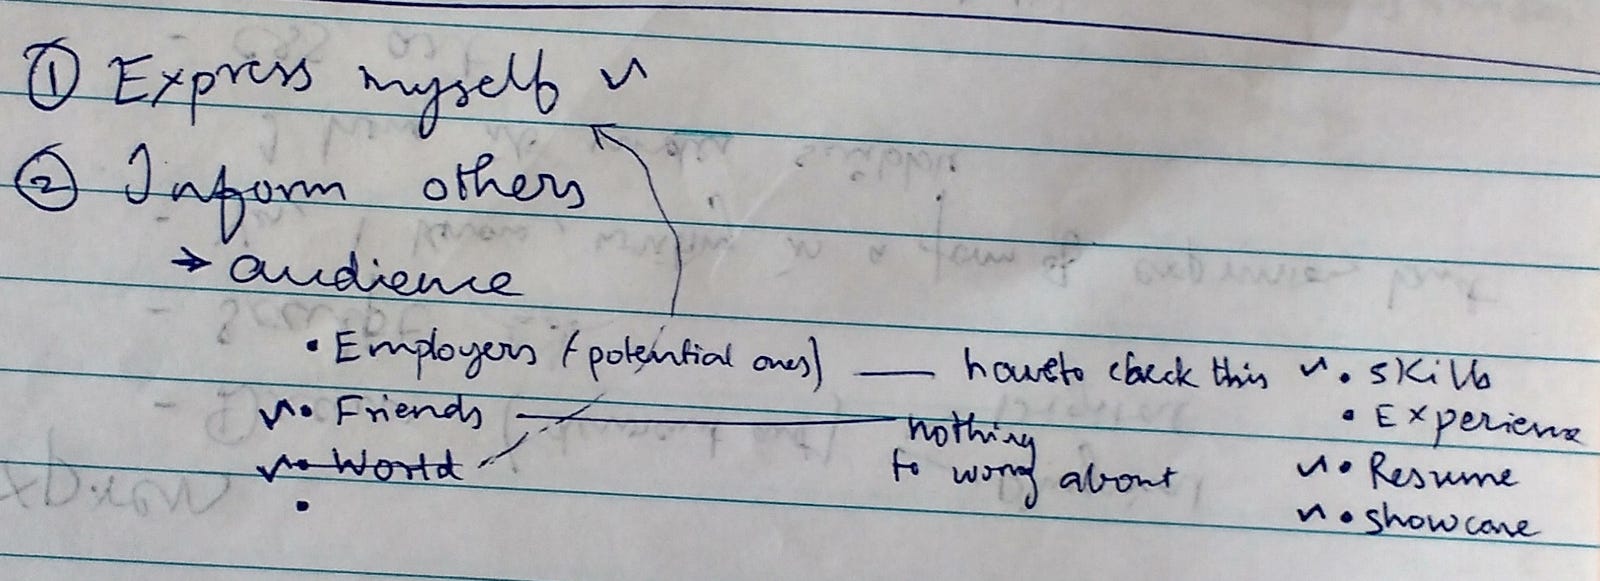 ① Express myself ✓
② Inform others
→ audience
• Employers (potential ones) — how to check this ✓ • Skills
• Experience
✓ • Friends — nothing
to worry about
✓ • World
✓ • Resume
✓ • showcase
•